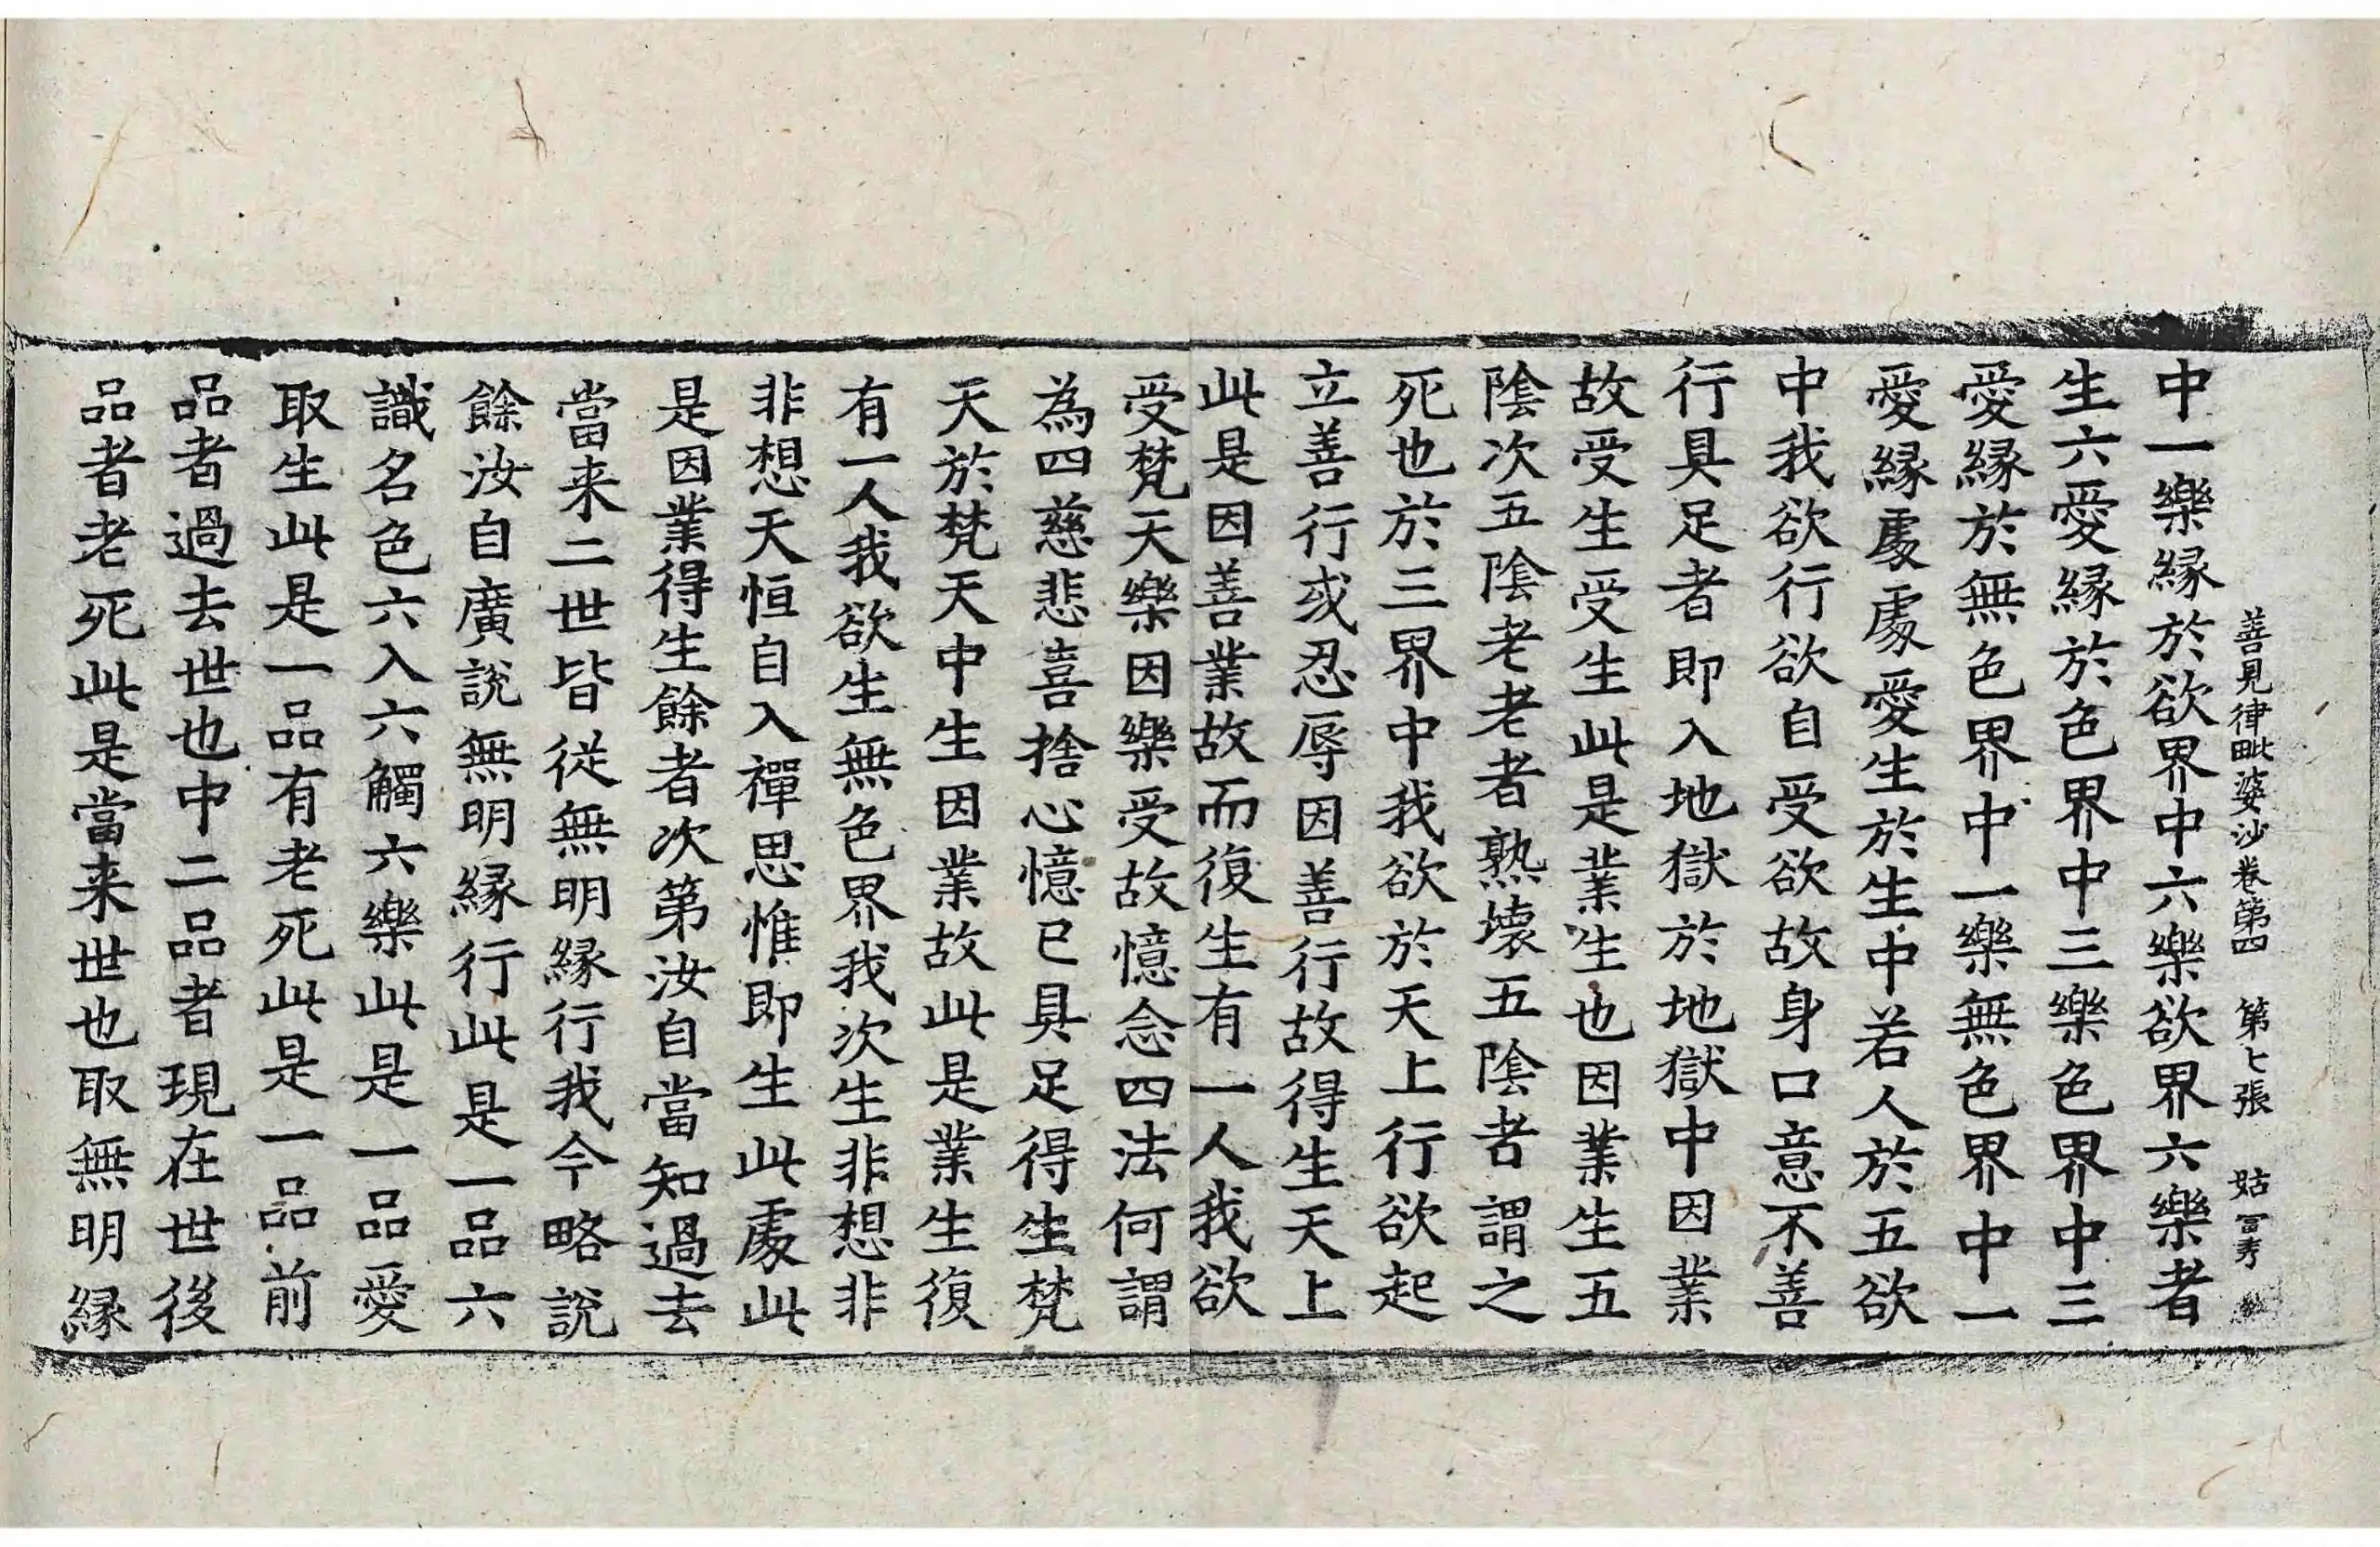 善見律毗婆沙卷第四 第七張 姑
中一樂緣於欲界中六樂欲界六樂者
生六愛緣於色界中三樂色界中三
愛緣於無色界中一樂無色界中一
愛緣處處愛生於生中若人於五欲
中我欲行欲自受欲故身口意不善
行具足者即入地獄於地獄中因業
故受生受生此是業生也因業生五
陰次五陰老老者熟壞五陰者謂之
死也於三界中我欲於天上行欲起
立善行或忍辱因善行故得生天上
此是因善業故而復生有一人我欲
受梵天樂因樂受故憶念四法何謂
為四慈悲喜捨心憶已具足得生梵
天於梵天中生因業故此是業生復
有一人我欲生無色界我次生非想非
非想天恒自入禪思惟即生此處此
是因業得生餘者次第汝自當知過去
當来二世皆從無明緣行我今略說
餘汝自廣說無明緣行此是一品六
識名色六入六觸六樂此是一品愛
取生此是一品有老死此是一品前
品者過去世也中二品者現在世後
品者老死此是當来世也取無明緣